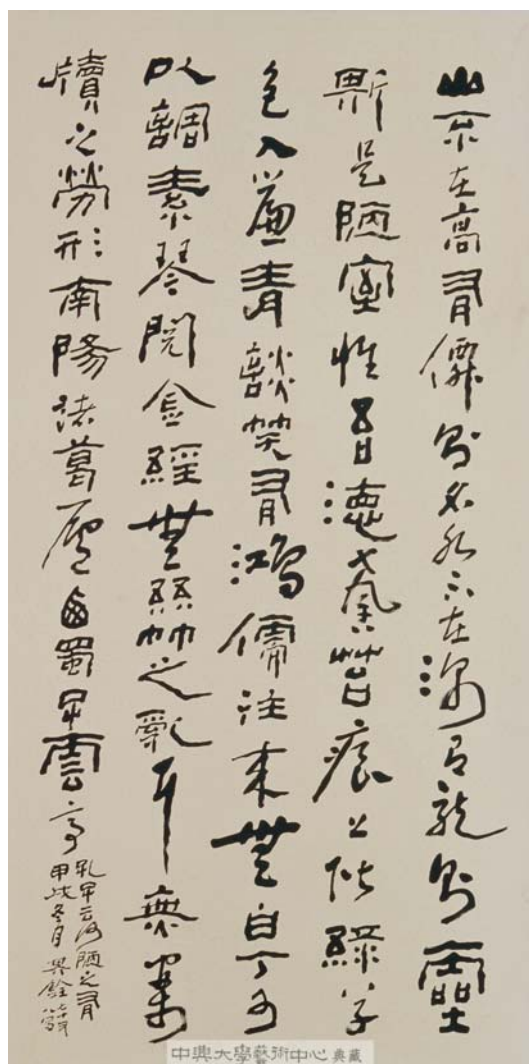 山不在高有僊則名水不在深有龍則靈
斯是陋室惟吾德馨苔痕上階綠草
色入簾青談笑有鴻儒往來無白丁可
以調素琴閱金經無絲竹之亂耳無案
牘之勞形南陽諸葛廬西蜀子雲亭
孔子云何陋之有
甲戌冬月
中興大學藝術中心典藏